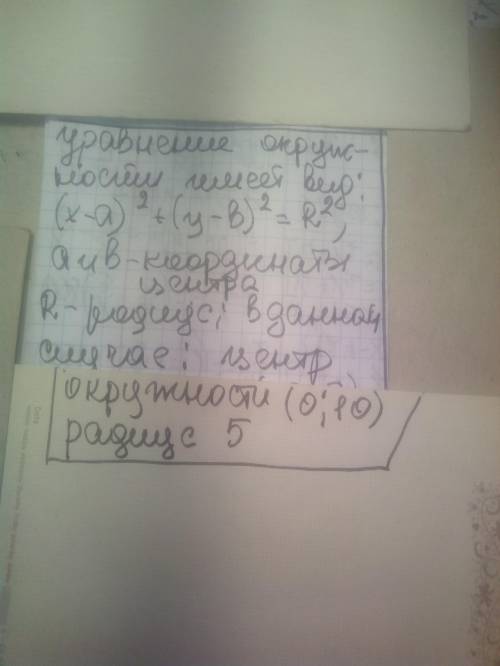 уравнение окруж-
ности имеет вид:
(x-a)² + (y-в)² = R²,
a и в - координаты
центра
R - радиус; в данном
случае: центр
окружности (0; 10)
радиус 5